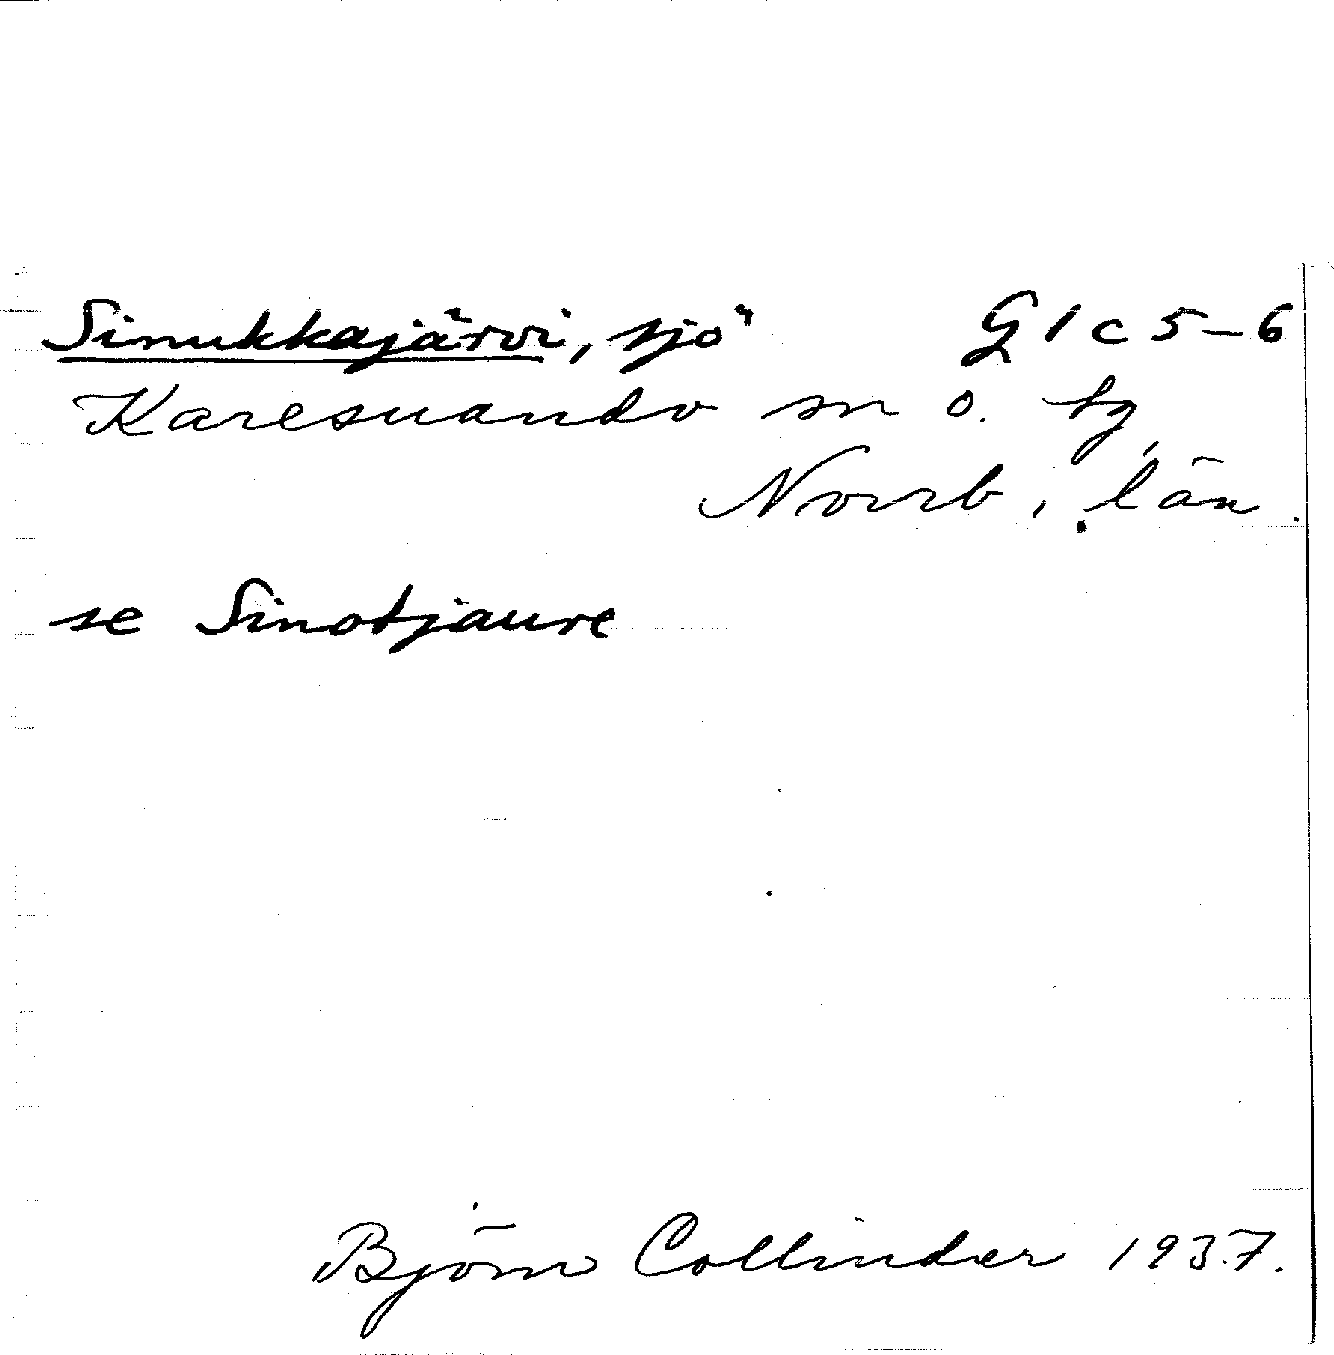 Sinukkajärvi, sjö G 1 c 5-6
Karesuando sn o. tg,
Norrb. län.
se Sinotjaure
Björn Collinder 1937.